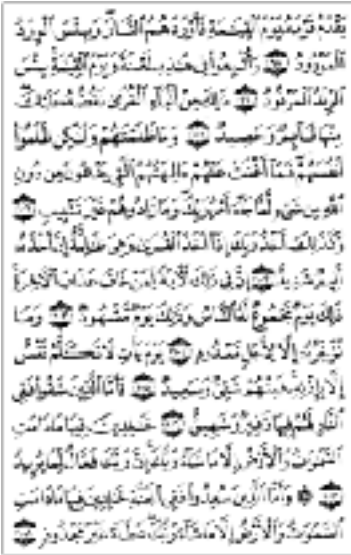 يَقْدُمُ قَوْمَهُۥ يَوْمَ ٱلْقِيَٰمَةِ فَأَوْرَدَهُمُ ٱلنَّارَ وَبِئْسَ ٱلْوِرْدُ
ٱلْمَوْرُودُ ٩٨ وَأُتْبِعُوا۟ فِى هَٰذِهِۦ لَعْنَةً وَيَوْمَ ٱلْقِيَٰمَةِ بِئْسَ
ٱلرِّفْدُ ٱلْمَرْفُودُ ٩٩ ذَٰلِكَ مِنْ أَنۢبَآءِ ٱلْقُرَىٰ نَقُصُّهُۥ عَلَيْكَ
مِنْهَا قَآئِمٌ وَحَصِيدٌ ١٠٠ وَمَا ظَلَمْنَٰهُمْ وَلَٰكِن ظَلَمُوٓا۟
أَنفُسَهُمْ فَمَآ أَغْنَتْ عَنْهُمْ ءَالِهَتُهُمُ ٱلَّتِى يَدْعُونَ مِن دُونِ
ٱللَّهِ مِن شَىْءٍ لَّمَّا جَآءَ أَمْرُ رَبِّكَ وَمَا زَادُوهُمْ غَيْرَ تَتْبِيبٍ ١٠١
وَكَذَٰلِكَ أَخْذُ رَبِّكَ إِذَآ أَخَذَ ٱلْقُرَىٰ وَهِىَ ظَٰلِمَةٌ إِنَّ أَخْذَهُۥٓ
أَلِيمٌ شَدِيدٌ ١٠٢ إِنَّ فِى ذَٰلِكَ لَءَايَةً لِّمَنْ خَافَ عَذَابَ ٱلْءَاخِرَةِ
ذَٰلِكَ يَوْمٌ مَّجْمُوعٌ لَّهُ ٱلنَّاسُ وَذَٰلِكَ يَوْمٌ مَّشْهُودٌ ١٠٣ وَمَا
نُؤَخِّرُهُۥٓ إِلَّا لِأَجَلٍ مَّعْدُودٍ ١٠٤ يَوْمَ يَأْتِ لَا تَكَلَّمُ نَفْسٌ
إِلَّا بِإِذْنِهِۦ فَمِنْهُمْ شَقِىٌّ وَسَعِيدٌ ١٠٥ فَأَمَّا ٱلَّذِينَ شَقُوا۟ فَفِى
ٱلنَّارِ لَهُمْ فِيهَا زَفِيرٌ وَشَهِيقٌ ١٠٦ خَٰلِدِينَ فِيهَا مَا دَامَتِ
ٱلسَّمَٰوَٰتُ وَٱلْأَرْضُ إِلَّا مَا شَآءَ رَبُّكَ إِنَّ رَبَّكَ فَعَّالٌ لِّمَا يُرِيدُ
١٠٧ ۞ وَأَمَّا ٱلَّذِينَ سُعِدُوا۟ فَفِى ٱلْجَنَّةِ خَٰلِدِينَ فِيهَا مَا دَامَتِ
ٱلسَّمَٰوَٰتُ وَٱلْأَرْضُ إِلَّا مَا شَآءَ رَبُّكَ عَطَآءً غَيْرَ مَجْذُوذٍ ١٠٨